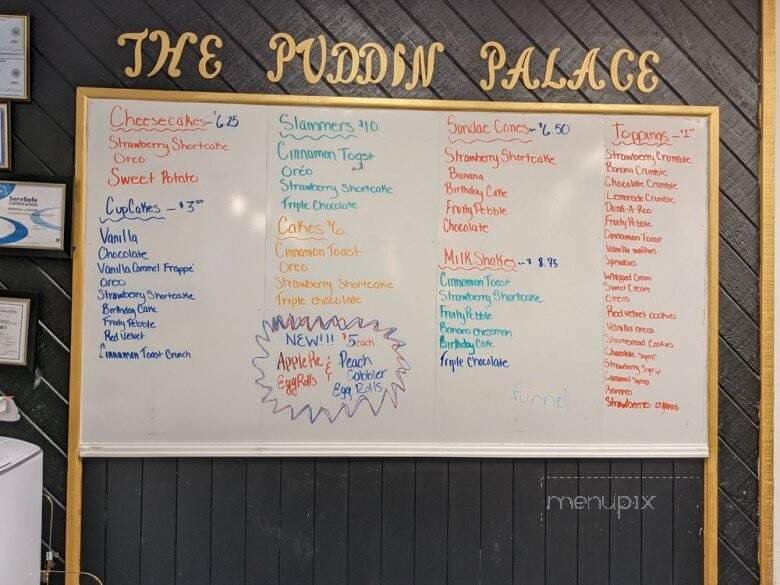 THE PUDDIN PALACE
Cheesecakes - $6.25
Strawberry Shortcake
Oreo
Sweet Potato
CupCakes - $3.00
Vanilla
Chocolate
Vanilla Caramel Frappe
Oreo
Strawberry Shortcake
Birthday Cake
Fruity Pebble
Red Velvet
Cinnamon Toast Crunch
Slammers $10
Cinnamon Toast
Oreo
Strawberry Shortcake
Triple Chocolate
Cakes $6
Cinnamon Toast
Oreo
Strawberry Shortcake
Triple chocolate
NEW!!! $5 each
Apple Pie & Peach
EggRolls Cobbler
Egg Rolls
Sundae Cones - $6.50
Strawberry Shortcake
Banana
Birthday Cake
Fruity Pebble
Chocolate
Milk Shakes - $8.95
Cinnamon Toast
Strawberry Shortcake
Fruity Pebble
Banana Chessman
Birthday Cake
Triple Chocolate
Funnel
Toppings - $1
Strawberry Crumble
Banana Crumble
Chocolate Crumble
Lemonade Crumble
Fruity Pebble
Cinnamon Toast
Vanilla waffers
Sprinkles
Whipped Cream
Sweet Cream
Oreos
Red velvet cookies
Vanilla oreos
Shortbread Cookies
Chocolate syrup
Strawberry Syrup
Caramel Syrup
Bananas
Strawberries
ServSafe
CERTIFICATION
menupix